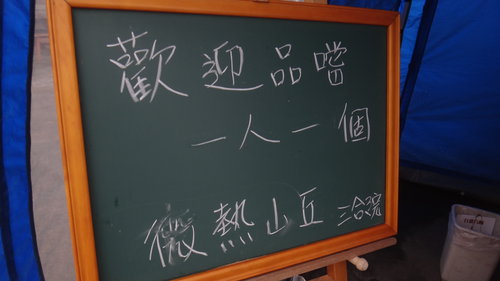 歡迎品嚐
一人一個
微熱山丘